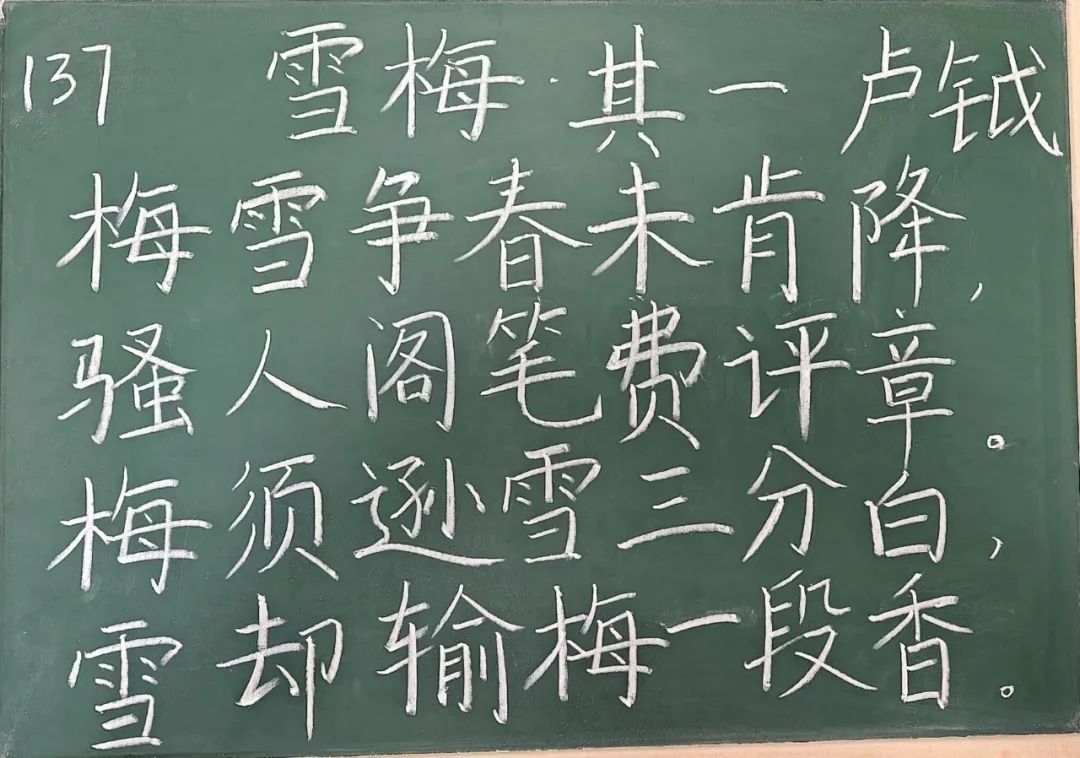 137 雪梅·其一 卢钺
梅雪争春未肯降,
骚人阁笔费评章。
梅须逊雪三分白,
雪却输梅一段香。